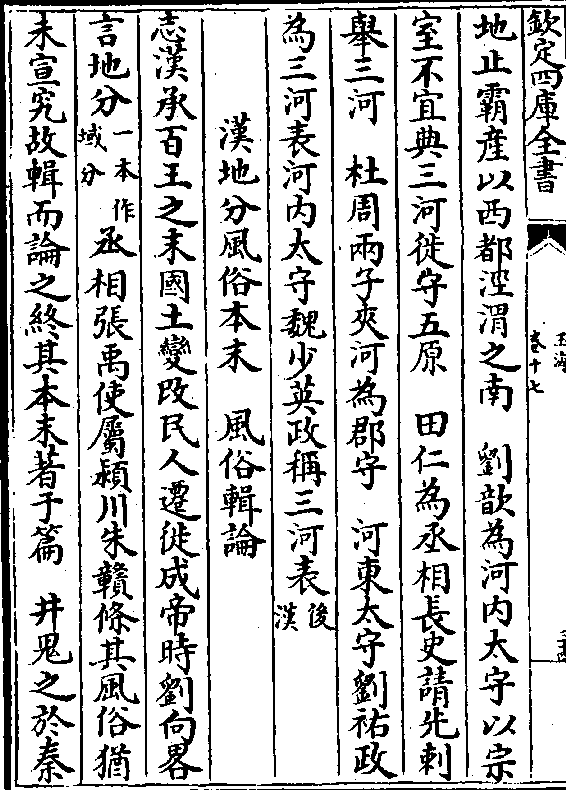 欽定四庫全書
玉海
卷十七
地止霸産以西都涇渭之南　劉歆為河内太守以宗
室不宜典三河徙守五原　田仁為丞相長史請先刺
舉三河　杜周兩子夾河為郡守　河東太守劉祐政
為三河表河内太守魏少英政稱三河表後漢
漢地分風俗本末　風俗輯論
志漢承百王之末國土變改民人遷徙成帝時劉向畧
言地分一本作域分丞相張禹使屬潁川朱贛條其風俗猶
未宣究故輯而論之終其本末著于篇　井鬼之於秦